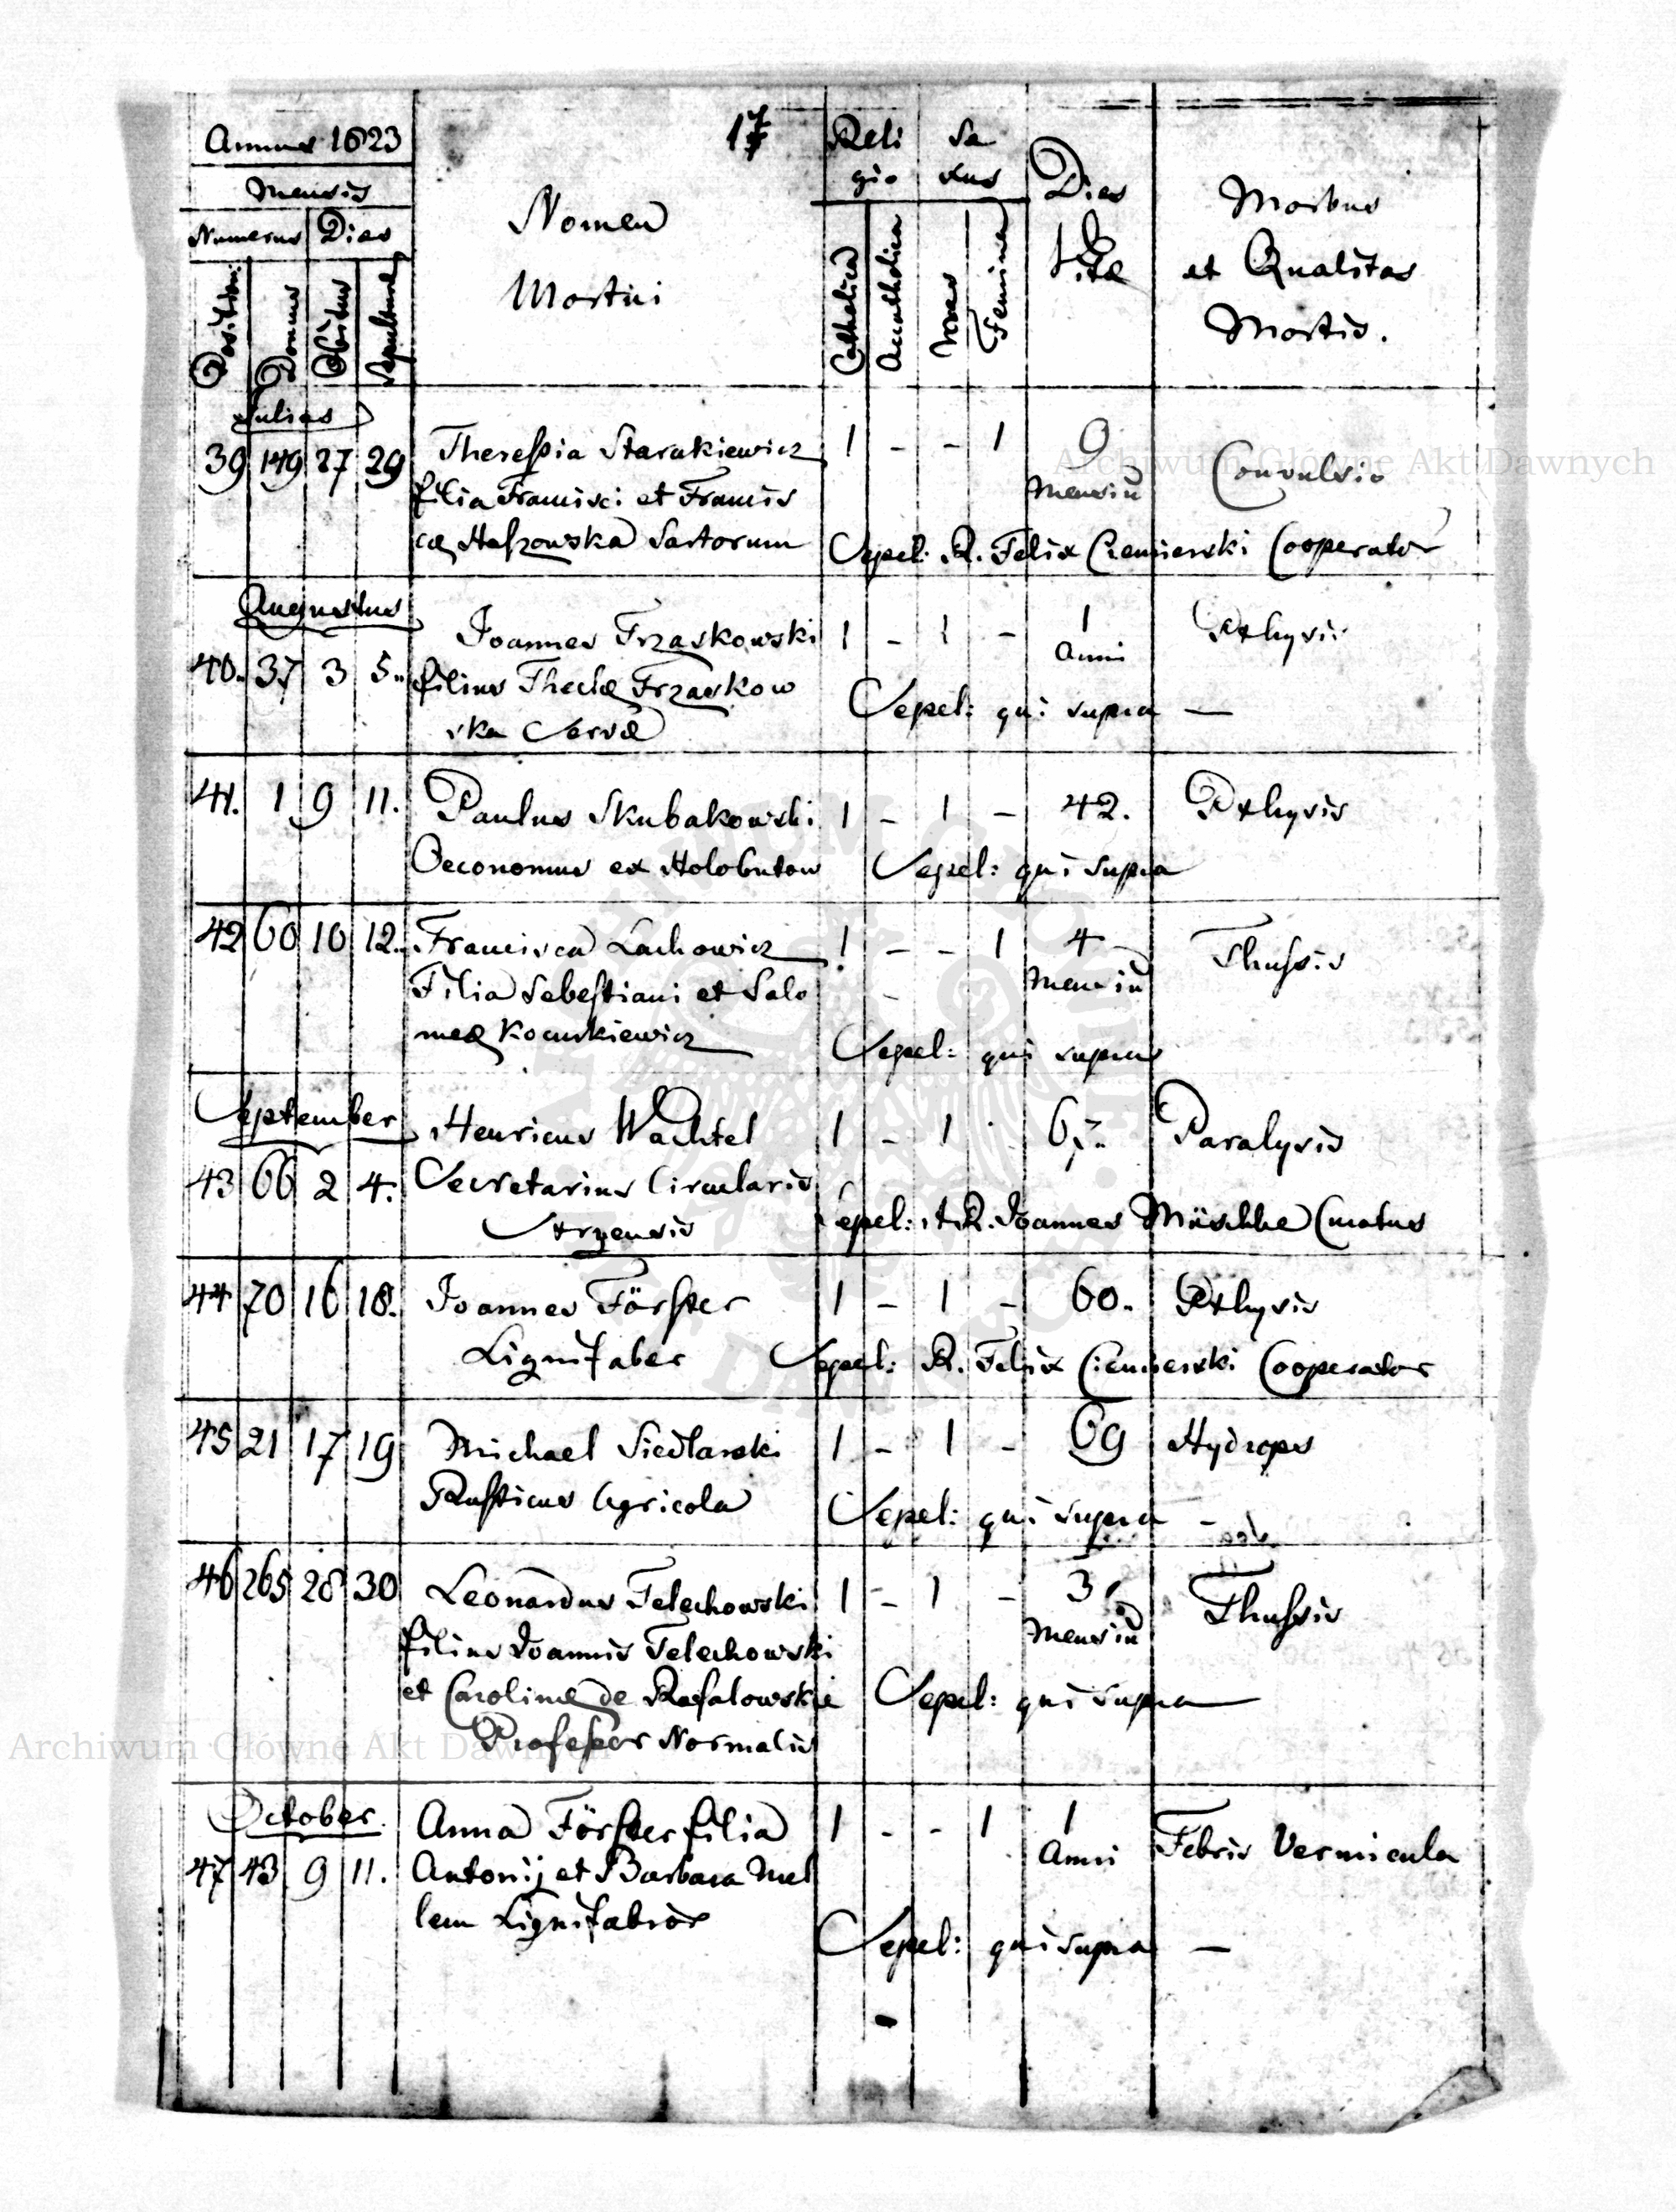 Annus 1823
17
Mensis
Numerus Dies
Positionis
Domus
Obitus
Sepulturae
Nomen
Mortui
Reli
gio
Catholica
Accatholica
Se
xus
Mas
Femina
Dies
Vitæ
Morbus
et Qualitas
Mortis.
Julius
39 149 27 29 Theressia Starakiewicz 1 - - 1 9 Convulsio
filia Francisci et Francis Mensiu
cæ Haszowska Sartorum Sepel: R. Felix Ciemierski Cooperator
Augustus
40. 37 3 5. Joannes Trzaskowski 1 - 1 - 1 Pthysis
filius Theclæ Trzaskow Anni
ska Servæ Sepel: qui supra —
41. 1 9 11. Paulus Skubakowski 1 - 1 - 42. Pthysis
Oeconomus ex Holobutow Sepel: qui supra
42 60 10 12. Francisca Lachowicz 1 - - 1 4 Thussis
Filia Sebestiani et Salo Mensiu
meæ Kocurkiewicz Sepel: qui supra
September
43 66 2 4. Henricus Wachtel 1 - 1 Paralysis
Secretarius Circularis
Stryensis Sepel: A.R. Joannes Müschke Curatus
44 70 16 18. Joannes Förster 1 - 1 - 60. Pthysis
Lignifaber Sepel: R. Felix Ciemierski Cooperator
45 21 17 19 Michael Siedlarski 1 - 1 - 69 Hydrops
Rusticus Agricola Sepel: qui supra -
46 265 28 30 Leonardus Telechowski 1 - 1 - 3 Thussis
filius Joannis Telechowski Mensiu
et Carolinæ de Rafalowskie Sepel: qui supra
Professor Normalis
October.
47 43 9 11. Anna Förster filia 1 - - 1 1 Febris Vermicula
Antonij et Barbara Mel Anni
lem Lignifabror Sepel: qui supra —
Archiwum Główne Akt Dawnych
Archiwum Główne Akt Dawnych